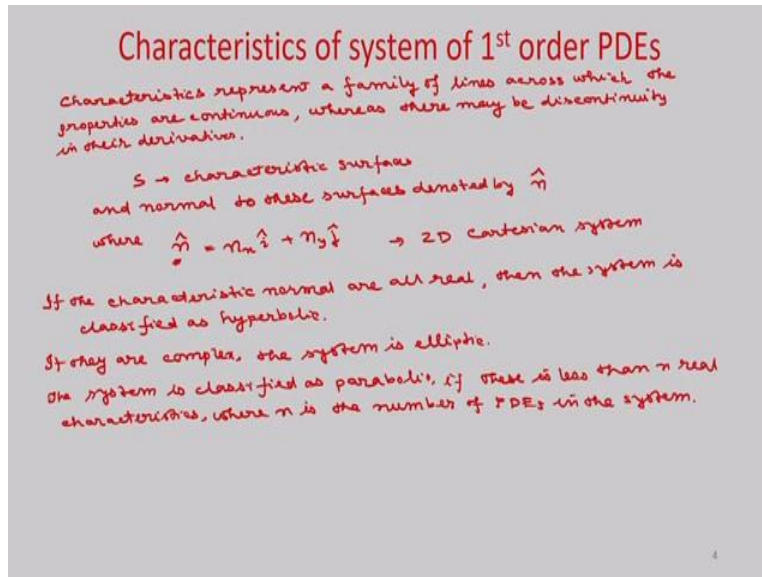 Characteristics of system of 1st order PDEs
Characteristics represent a family of lines across which the
properties are continuous, whereas there may be discontinuity
in their derivatives.
S → characteristic surfaces
and normal to these surfaces denoted by n̂
where n̂ = nₓ î + n_y ĵ → 2D Cartesian system
If the characteristic normal are all real, then the system is
classified as hyperbolic.
If they are complex, the system is elliptic.
The system is classified as parabolic, if there is less than n real
characteristics, where n is the number of PDEs in the system.
4